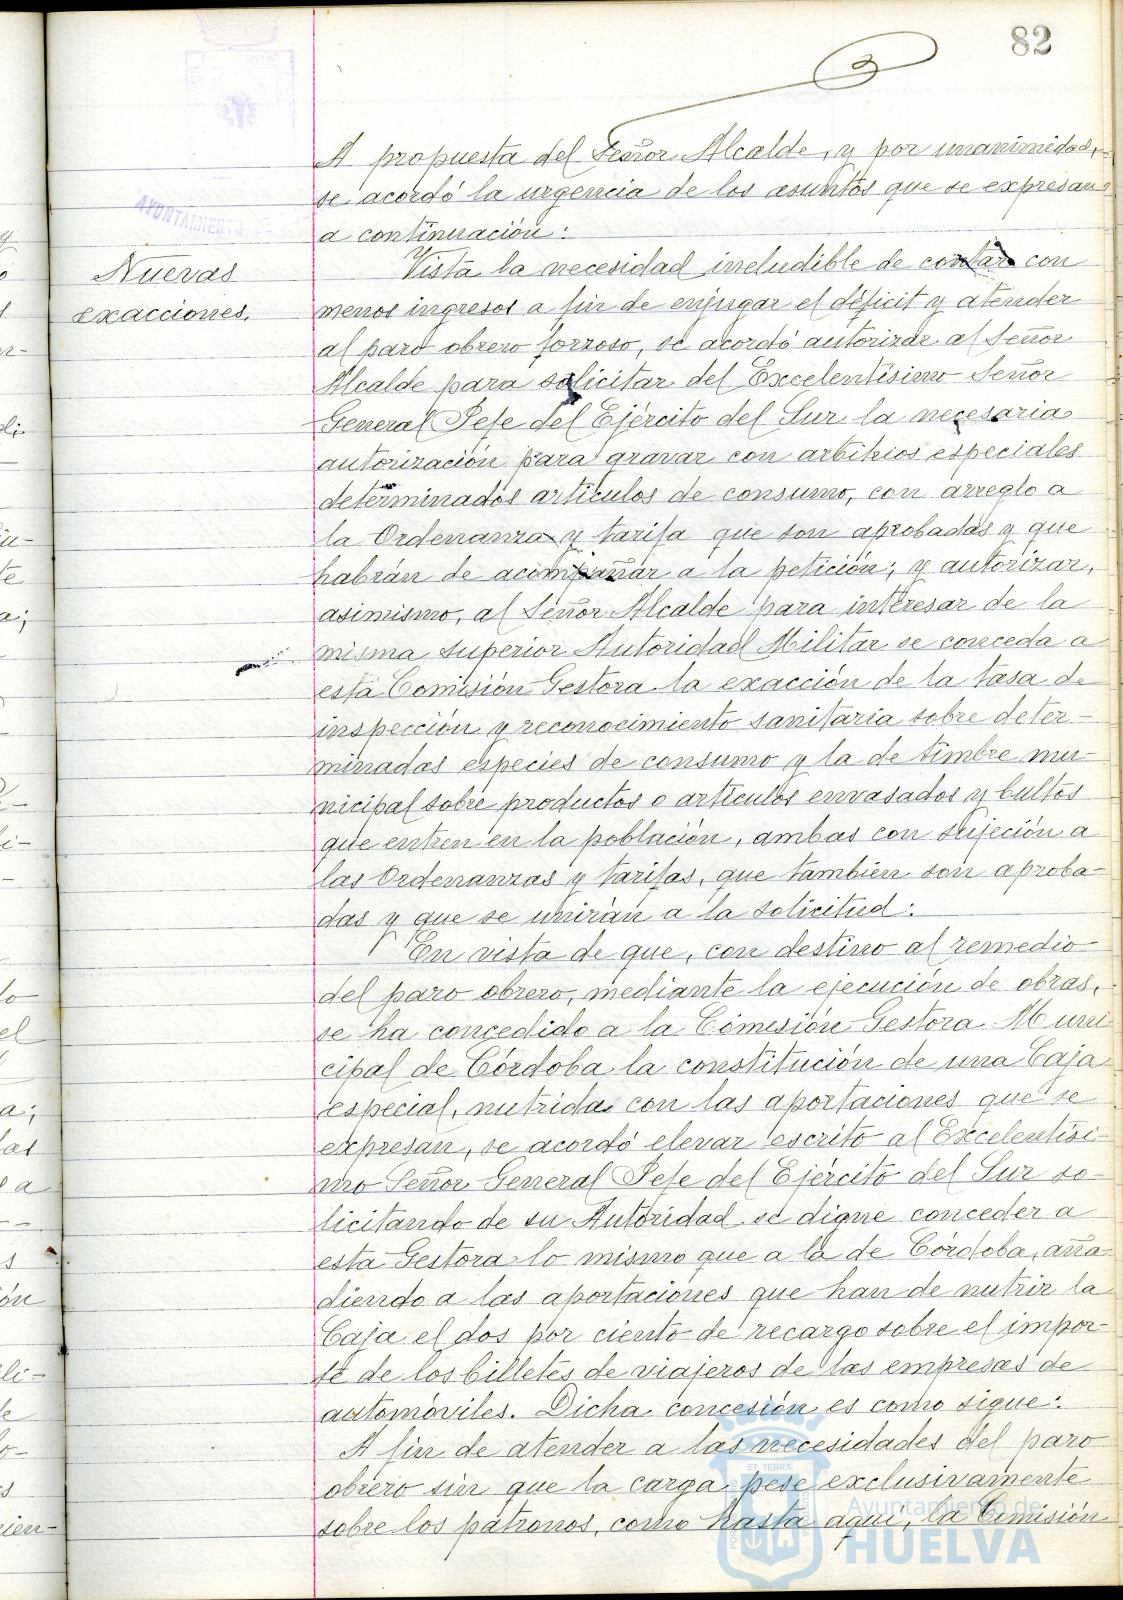 82
A propuesta del Señor Alcalde, y por unanimidad,
se acordó la urgencia de los asuntos que se expresan
a continuación:
Nuevas
exacciones.
Vista la necesidad ineludible de contar con
menos ingresos a fin de enjugar el déficit y atender
al paro obrero forzoso, se acordó autorizar al Señor
Alcalde para solicitar del Excelentísimo Señor
General Jefe del Ejército del Sur la necesaria
autorización para gravar con arbitrios especiales
determinados artículos de consumo, con arreglo a
la Ordenanza y tarifa que son aprobadas y que
habrán de acompañar a la petición; y autorizar,
asimismo, al Señor Alcalde para interesar de la
misma superior Autoridad Militar se conceda a
esta Comisión Gestora la exacción de la tasa de
inspección y reconocimiento sanitaria sobre deter-
minadas especies de consumo y la de timbre mu-
nicipal sobre productos o artículos envasados y bultos
que entren en la población, ambas con sujeción a
las Ordenanzas y tarifas, que también son aproba-
das y que se unirán a la solicitud:
En vista de que, con destino al remedio
del paro obrero, mediante la ejecución de obras,
se ha concedido a la Comisión Gestora Muni
cipal de Córdoba la constitución de una Caja
especial, nutrida con las aportaciones que se
expresan, se acordó elevar escrito al Excelentísi-
mo Señor General Jefe del Ejército del Sur so-
licitando de su Autoridad se digne conceder a
esta Gestora lo mismo que a la de Córdoba, aña-
diendo a las aportaciones que han de nutrir la
Caja el dos por ciento de recargo sobre el impor-
te de los billetes de viajeros de las empresas de
automóviles. Dicha concesión es como sigue:
A fin de atender a las necesidades del paro
obrero sin que la carga pese exclusivamente
sobre los patronos, como hasta aquí, la Comisión
AYUNTAMIENTO DE
Ayuntamiento de
HUELVA